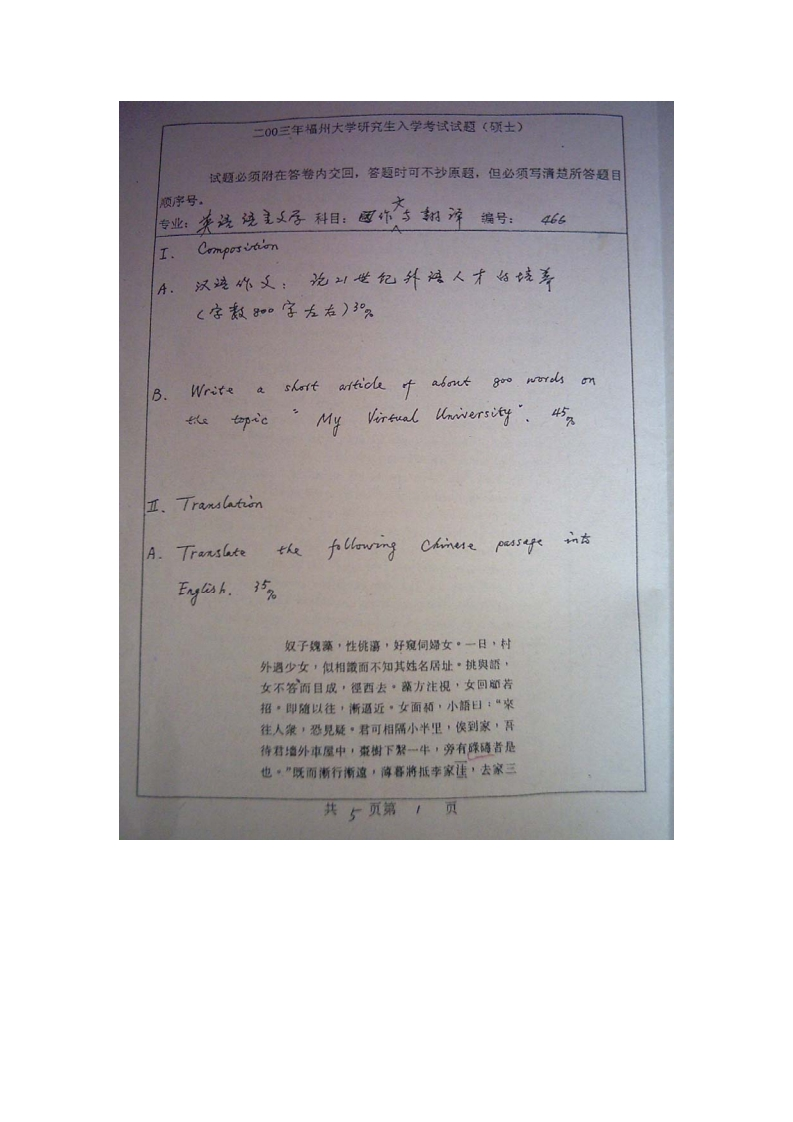 二00三年福州大学研究生入学考试试题（硕士）
试题必须附在答卷内交回，答题时可不抄原题，但必须写清楚所答题目
顺序号。
专业：英语语言文学 科目：作文与翻译 编号：466
I. Composition
A. 汉语作文：论21世纪外语人才的培养
（字数800字左右）30%
B. Write a short article of about 800 words on
the topic "My Virtual University". 45%
II. Translation
A. Translate the following Chinese passage into
English. 35%
奴子魏藻，性佻蕩，好窺伺婦女。一日，村
外遇少女，似相識而不知其姓名居址。挑與語，
女不答而目成，徑西去。藻方注視，女回顧若
招。即隨以往，漸逼近。女面赬，小語曰：“來
往人衆，恐見疑。君可相隔小半里，俟到家，吾
待君墻外車屋中，棗樹下繫一牛，旁有碌碡者是
也。”既而漸行漸遠，薄暮將抵李家洼，去家三
共 5 页第 1 页